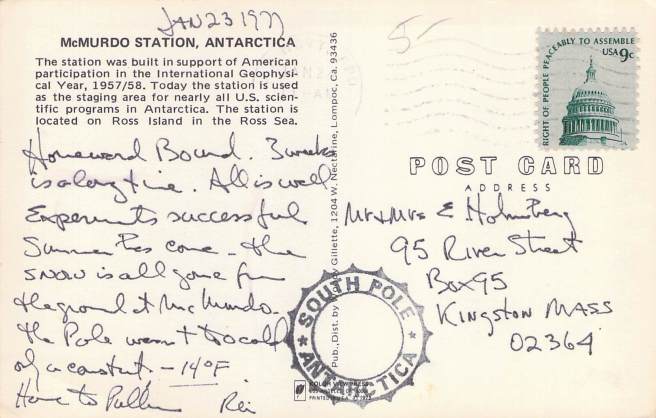 JAN 23 1977
McMURDO STATION, ANTARCTICA
The station was built in support of American
participation in the International Geophysi-
cal Year, 1957/58. Today the station is used
as the staging area for nearly all U.S. scien-
tific programs in Antarctica. The station is
located on Ross Island in the Ross Sea.
Homeward Bound. 3 weeks
is a long time. All is well
Experiments successful
Summer has come - the
snow is all gone from
the ground at McMurdo.
the Pole wasn't so cold
only a constant - 14°F.
Home to Pullman
Pub., Dist. by Gillette, 1204 W. Nectarine, Lompoc, Ca. 93436
5-
RIGHT OF PEOPLE PEACEABLY TO ASSEMBLE
USA 9c
POST CARD
ADDRESS
Mr & Mrs E Holmberg
95 River Street
Box 95
Kingston MASS
02364
SOUTH POLE
ANTARCTICA